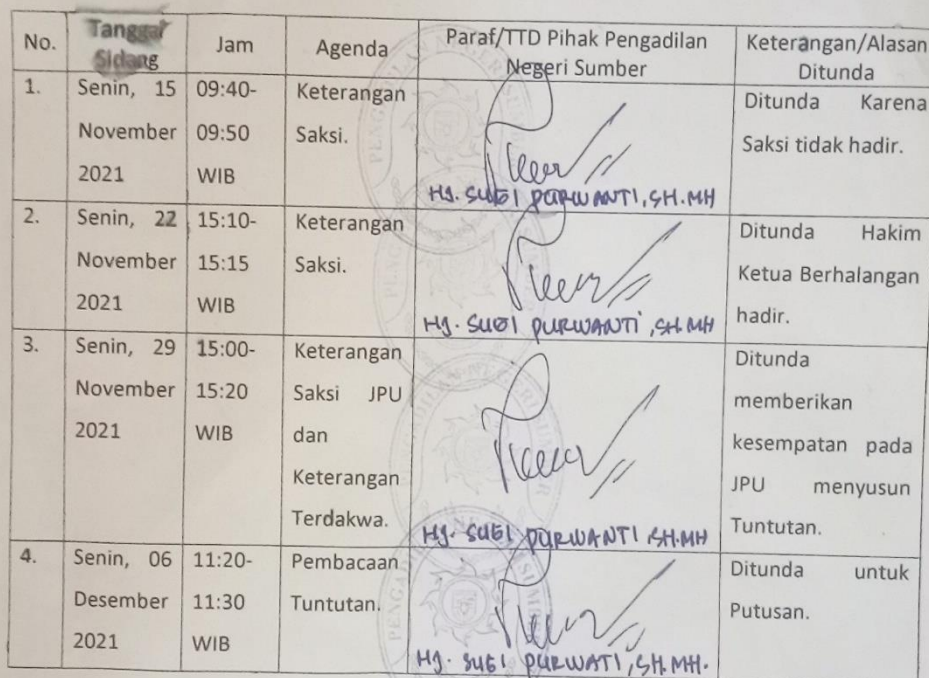 No. Tanggal Sidang Jam Agenda Paraf/TTD Pihak Pengadilan Negeri Sumber Keterangan/Alasan Ditunda
1. Senin, 15 November 2021 09:40-09:50 WIB Keterangan Saksi. HJ. SUGI PURWANTI, SH.MH Ditunda Karena Saksi tidak hadir.
2. Senin, 22 November 2021 15:10-15:15 WIB Keterangan Saksi. HJ. SUGI PURWANTI, SH.MH Ditunda Hakim Ketua Berhalangan hadir.
3. Senin, 29 November 2021 15:00-15:20 WIB Keterangan Saksi JPU dan Keterangan Terdakwa. HJ. SUGI PURWANTI, SH.MH Ditunda memberikan kesempatan pada JPU menyusun Tuntutan.
4. Senin, 06 Desember 2021 11:20-11:30 WIB Pembacaan Tuntutan. HJ. SUGI PURWATI, SH.MH. Ditunda untuk Putusan.